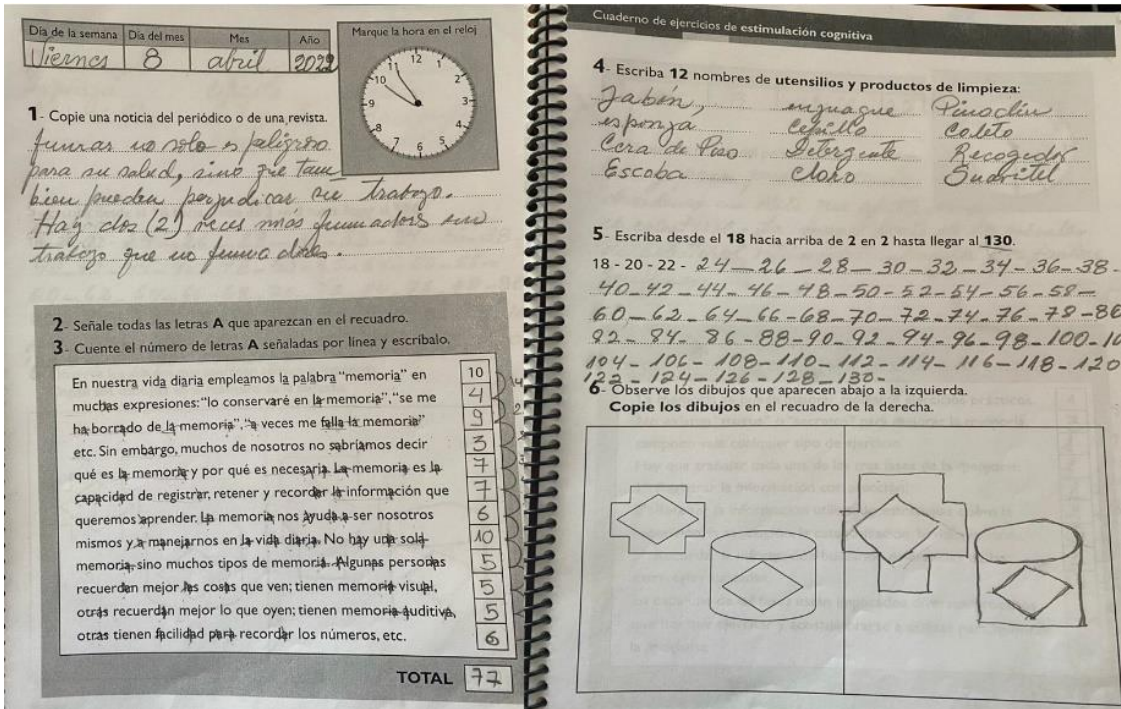 Día de la semana Día del mes Mes Año
Viernes 8 abril 2022
Marque la hora en el reloj
12
11 1
10 2
9 3
8 4
7 6 5
1- Copie una noticia del periódico o de una revista.
fumar no solo es peligroso
para su salud, sino que tam
bien pueden perjudicar su trabajo.
Hay dos (2) veces más fumadors sin
trabajo que no fumadores.
2- Señale todas las letras A que aparezcan en el recuadro.
3- Cuente el número de letras A señaladas por línea y escríbalo.
En nuestra vida diaria empleamos la palabra "memoria" en 10
muchas expresiones: "lo conservaré en la memoria", "se me 4
ha borrado de la memoria", "a veces me falla la memoria" 9
etc. Sin embargo, muchos de nosotros no sabríamos decir 3
qué es la memoria y por qué es necesaria. La memoria es la 7
capacidad de registrar, retener y recordar la información que 7
queremos aprender. La memoria nos ayuda a ser nosotros 6
mismos y a manejarnos en la vida diaria. No hay una sola 10
memoria, sino muchos tipos de memoria. Algunas personas 5
recuerdan mejor las cosas que ven; tienen memoria visual, 5
otras recuerdan mejor lo que oyen; tienen memoria auditiva, 5
otras tienen facilidad para recordar los números, etc. 6
TOTAL 77
Cuaderno de ejercicios de estimulación cognitiva
4- Escriba 12 nombres de utensilios y productos de limpieza:
Jabón, enjuague Pinoclin
esponja Cepillo Coleto
Cera de Piso Detergente Recogedor
Escoba Cloro Suavitel
5- Escriba desde el 18 hacia arriba de 2 en 2 hasta llegar al 130.
18 - 20 - 22 - 24 - 26 - 28 - 30 - 32 - 34 - 36 - 38 -
40 - 42 - 44 - 46 - 48 - 50 - 52 - 54 - 56 - 58 -
60 - 62 - 64 - 66 - 68 - 70 - 72 - 74 - 76 - 78 - 80
82 - 84 - 86 - 88 - 90 - 92 - 94 - 96 - 98 - 100 - 10
104 - 106 - 108 - 110 - 112 - 114 - 116 - 118 - 120
122 - 124 - 126 - 128 - 130 -
6- Observe los dibujos que aparecen abajo a la izquierda.
Copie los dibujos en el recuadro de la derecha.